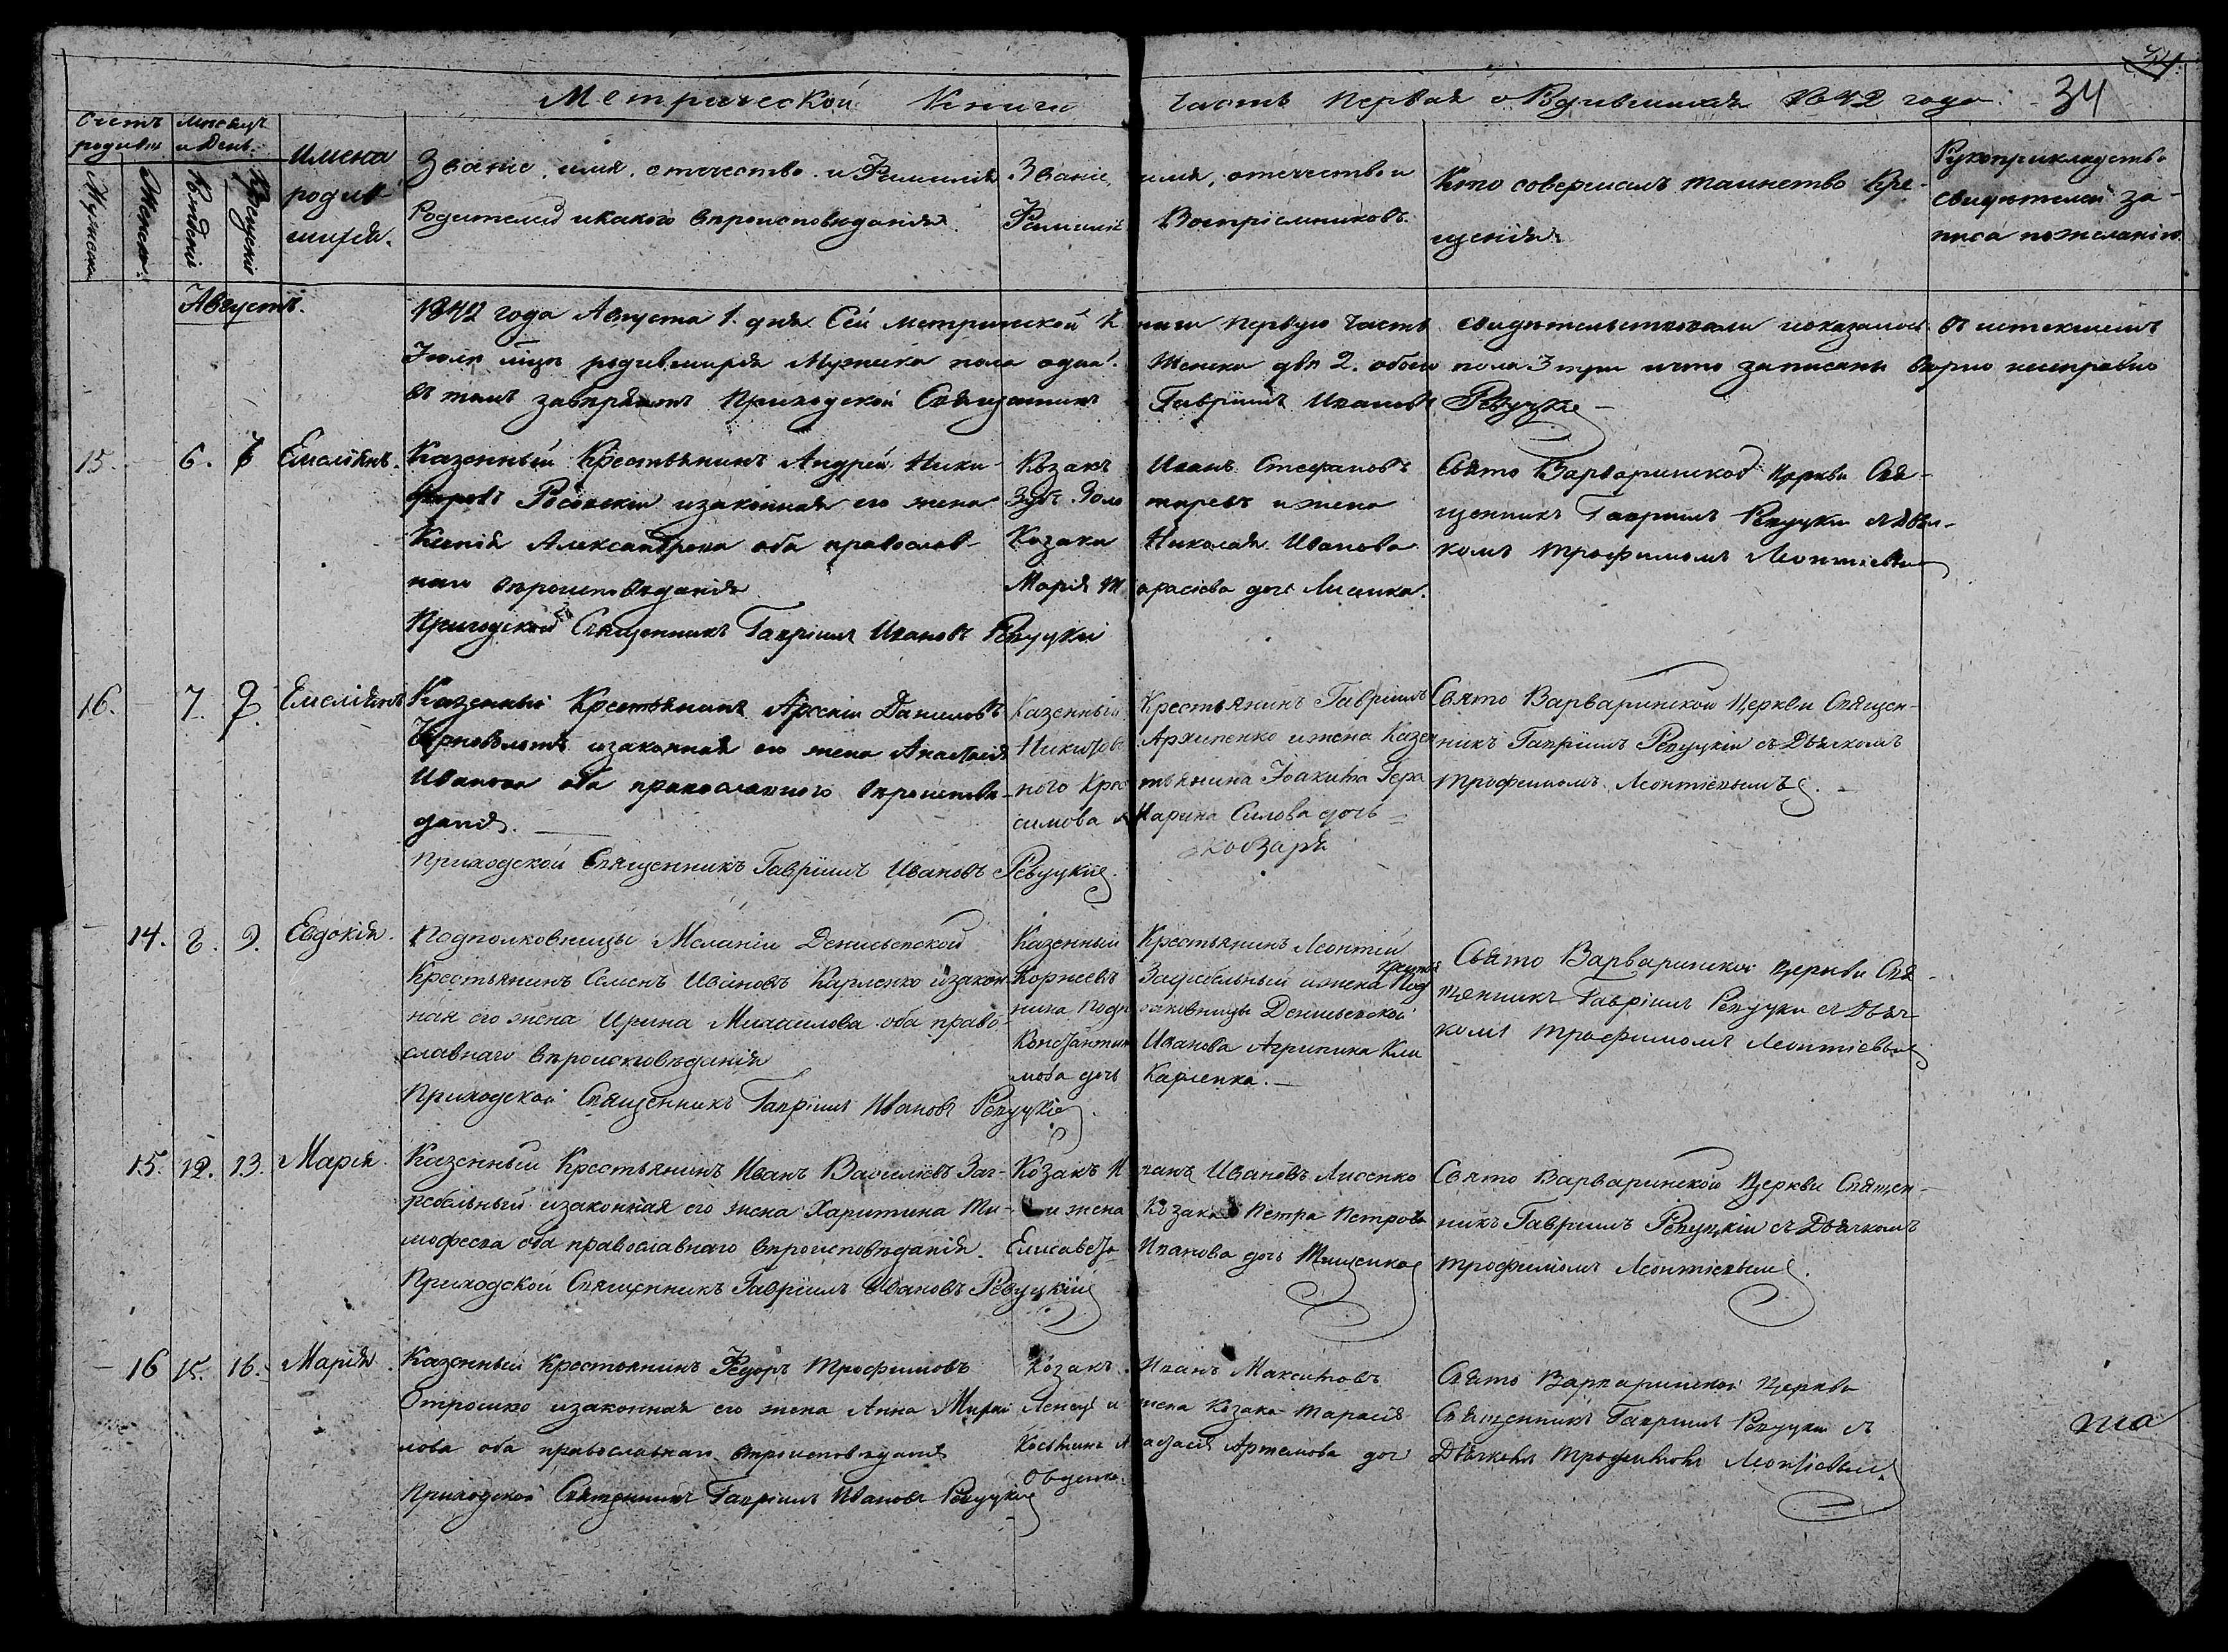 34.
Метрической Книги Часть первая о Родившихся 1842 года. 34
Счетъ родивш.
Мужеска
Женска.
Месяцъ и День.
Рожденія
Крещенія
Имена
родив-
шихся.
Званіе, имя, отечество и Фамилія
Родителей и какого вероисповеданія
Званіе, имя, отечество и
Фамилія Воспріемниковъ.
Кто совершалъ таинство Кре-
щенія
Рукоприкладство
свидетелей за-
писи по желанію
Августъ.
1842 года Августа 1. дня Сей метрической Книги первую Часть свидетельствовали и оказалось въ истекшемъ
Іюле родившихся Мужеска пола одна 1. Женска две 2. обоего пола 3 три и что записаны верно и исправно
въ томъ Приходской Священникъ Гавріилъ Ивановъ Ревуцкій
15. 6. Емеліянъ.
Казенный Крестьянинъ Андрей Ники-
форовъ и законная его жена
Ксенія Александрова оба православ-
наго вероисповеданія
Приходской Священникъ Гавріилъ Ивановъ Ревуцкій
Козакъ Иванъ Стефановъ
и жена
Козака Николая Иванова
Марія Тарасіева дочь
Свято Варваринской Церкви Свя-
щенникъ Гавріилъ Ревуцкій съ Дьяч-
комъ Трофимомъ Леонтіевымъ
16. 7. Емеліянъ
Казенный Крестьянинъ Арсеній Даниловъ
и законная его жена Анастасія
Иванова оба православнаго вероиспове-
данія.
Приходской Священникъ Гавріилъ Ивановъ Ревуцкій
Казенный Крестьянинъ Гавріилъ
Никитовъ Архипенко и жена Казен
ного Крестьянина Іоакима Гера
симова Марина Силова дочь
Кобзаря
Свято Варваринской Церкви Священ-
никъ Гавріилъ Ревуцкій съ Дьячкомъ
Трофимомъ Леонтіевымъ.
14. 8. 9. Евдокія.
Подполковницы Меланіи
Крестьянинъ Семенъ Ивановъ Карпенко и закон-
ная его жена Ирина Михайлова оба право-
славнаго вероисповеданія
Приходской Священникъ Гавріилъ Ивановъ Ревуцкій
Казенный Крестьянинъ Леонтій
Корнеевъ Загребельный и жена
Константина Иванова Агрипина Кли
мова дочь Карпенка.
Свято Варваринской Церкви Свя-
щенникъ Гавріилъ Ревуцкій съ Дьяч-
комъ Трофимомъ Леонтіевымъ
15. 12. 13. Марія.
Казенный Крестьянинъ Иванъ Василіевъ Заг-
ребельный и законная его жена Харитина Ти-
мофеева оба православнаго вероисповеданія.
Приходской Священникъ Гавріилъ Ивановъ Ревуцкій
Козакъ Иванъ Ивановъ Лисенко
и жена Козака Петра Петрова
Елисавета Иванова дочь Тищенка
Свято Варваринской Церкви Священ-
никъ Гавріилъ Ревуцкій съ Дьячкомъ
Трофимомъ Леонтіевымъ.
16 15. 16. Марія.
Казенный Крестьянинъ Федоръ Трофимовъ
Отрошко и законная его жена Анна
оба православнаго вероисповеданія
Приходской Священникъ Гавріилъ Ивановъ Ревуцкій
Козакъ Иванъ Максимовъ
и жена Козака Тарасія
Артемова дочь
Свято Варваринской Церкви
Священникъ Гавріилъ Ревуцкій съ
Дьячкомъ Трофимомъ Леонтіевымъ.